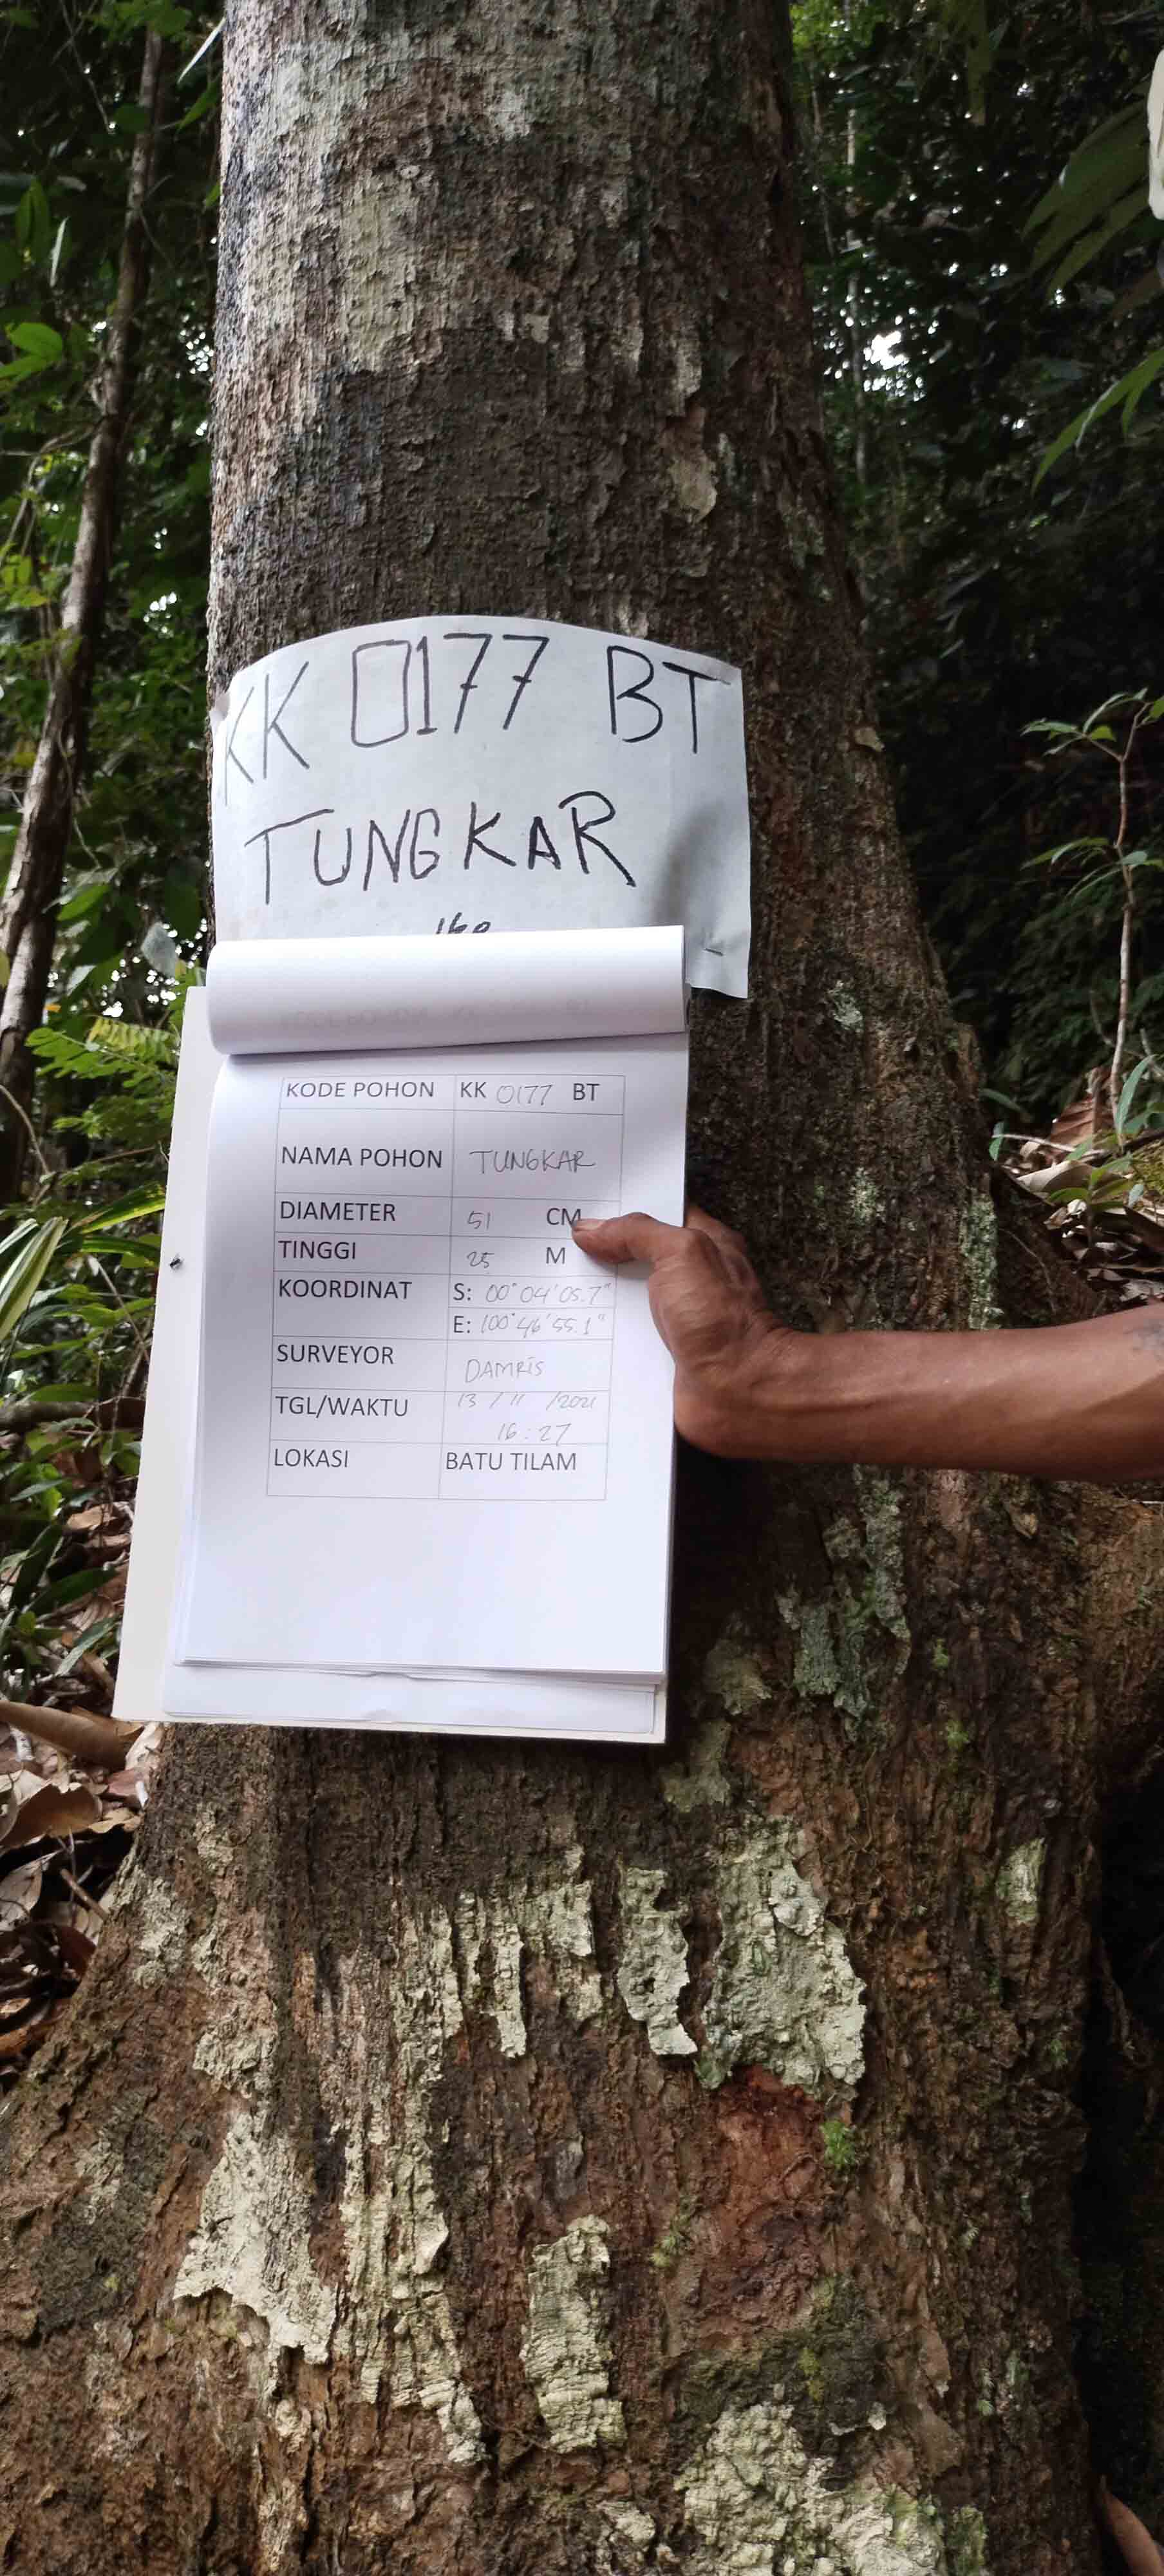 KK 0177 BT
TUNGKAR
160
KODE POHON KK 0177 BT
NAMA POHON TUNGKAR
DIAMETER 51 CM
TINGGI 25 M
KOORDINAT S: 00°04'05.7"
E: 100°46'55.1"
SURVEYOR DAMRIS
TGL/WAKTU 13 / 11 /2021
16:27
LOKASI BATU TILAM